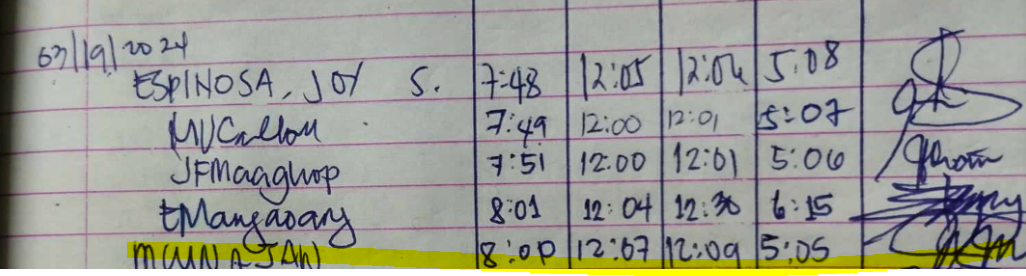 03/19/2024
ESPINOSA, JOY S. 7:48 12:05 12:06 5:08
7:49 12:00 12:01 5:07
JFMagghop 7:51 12:00 12:01 5:06
EMangaoang 8:01 12:04 12:30 6:15
8:00 12:07 12:09 5:05